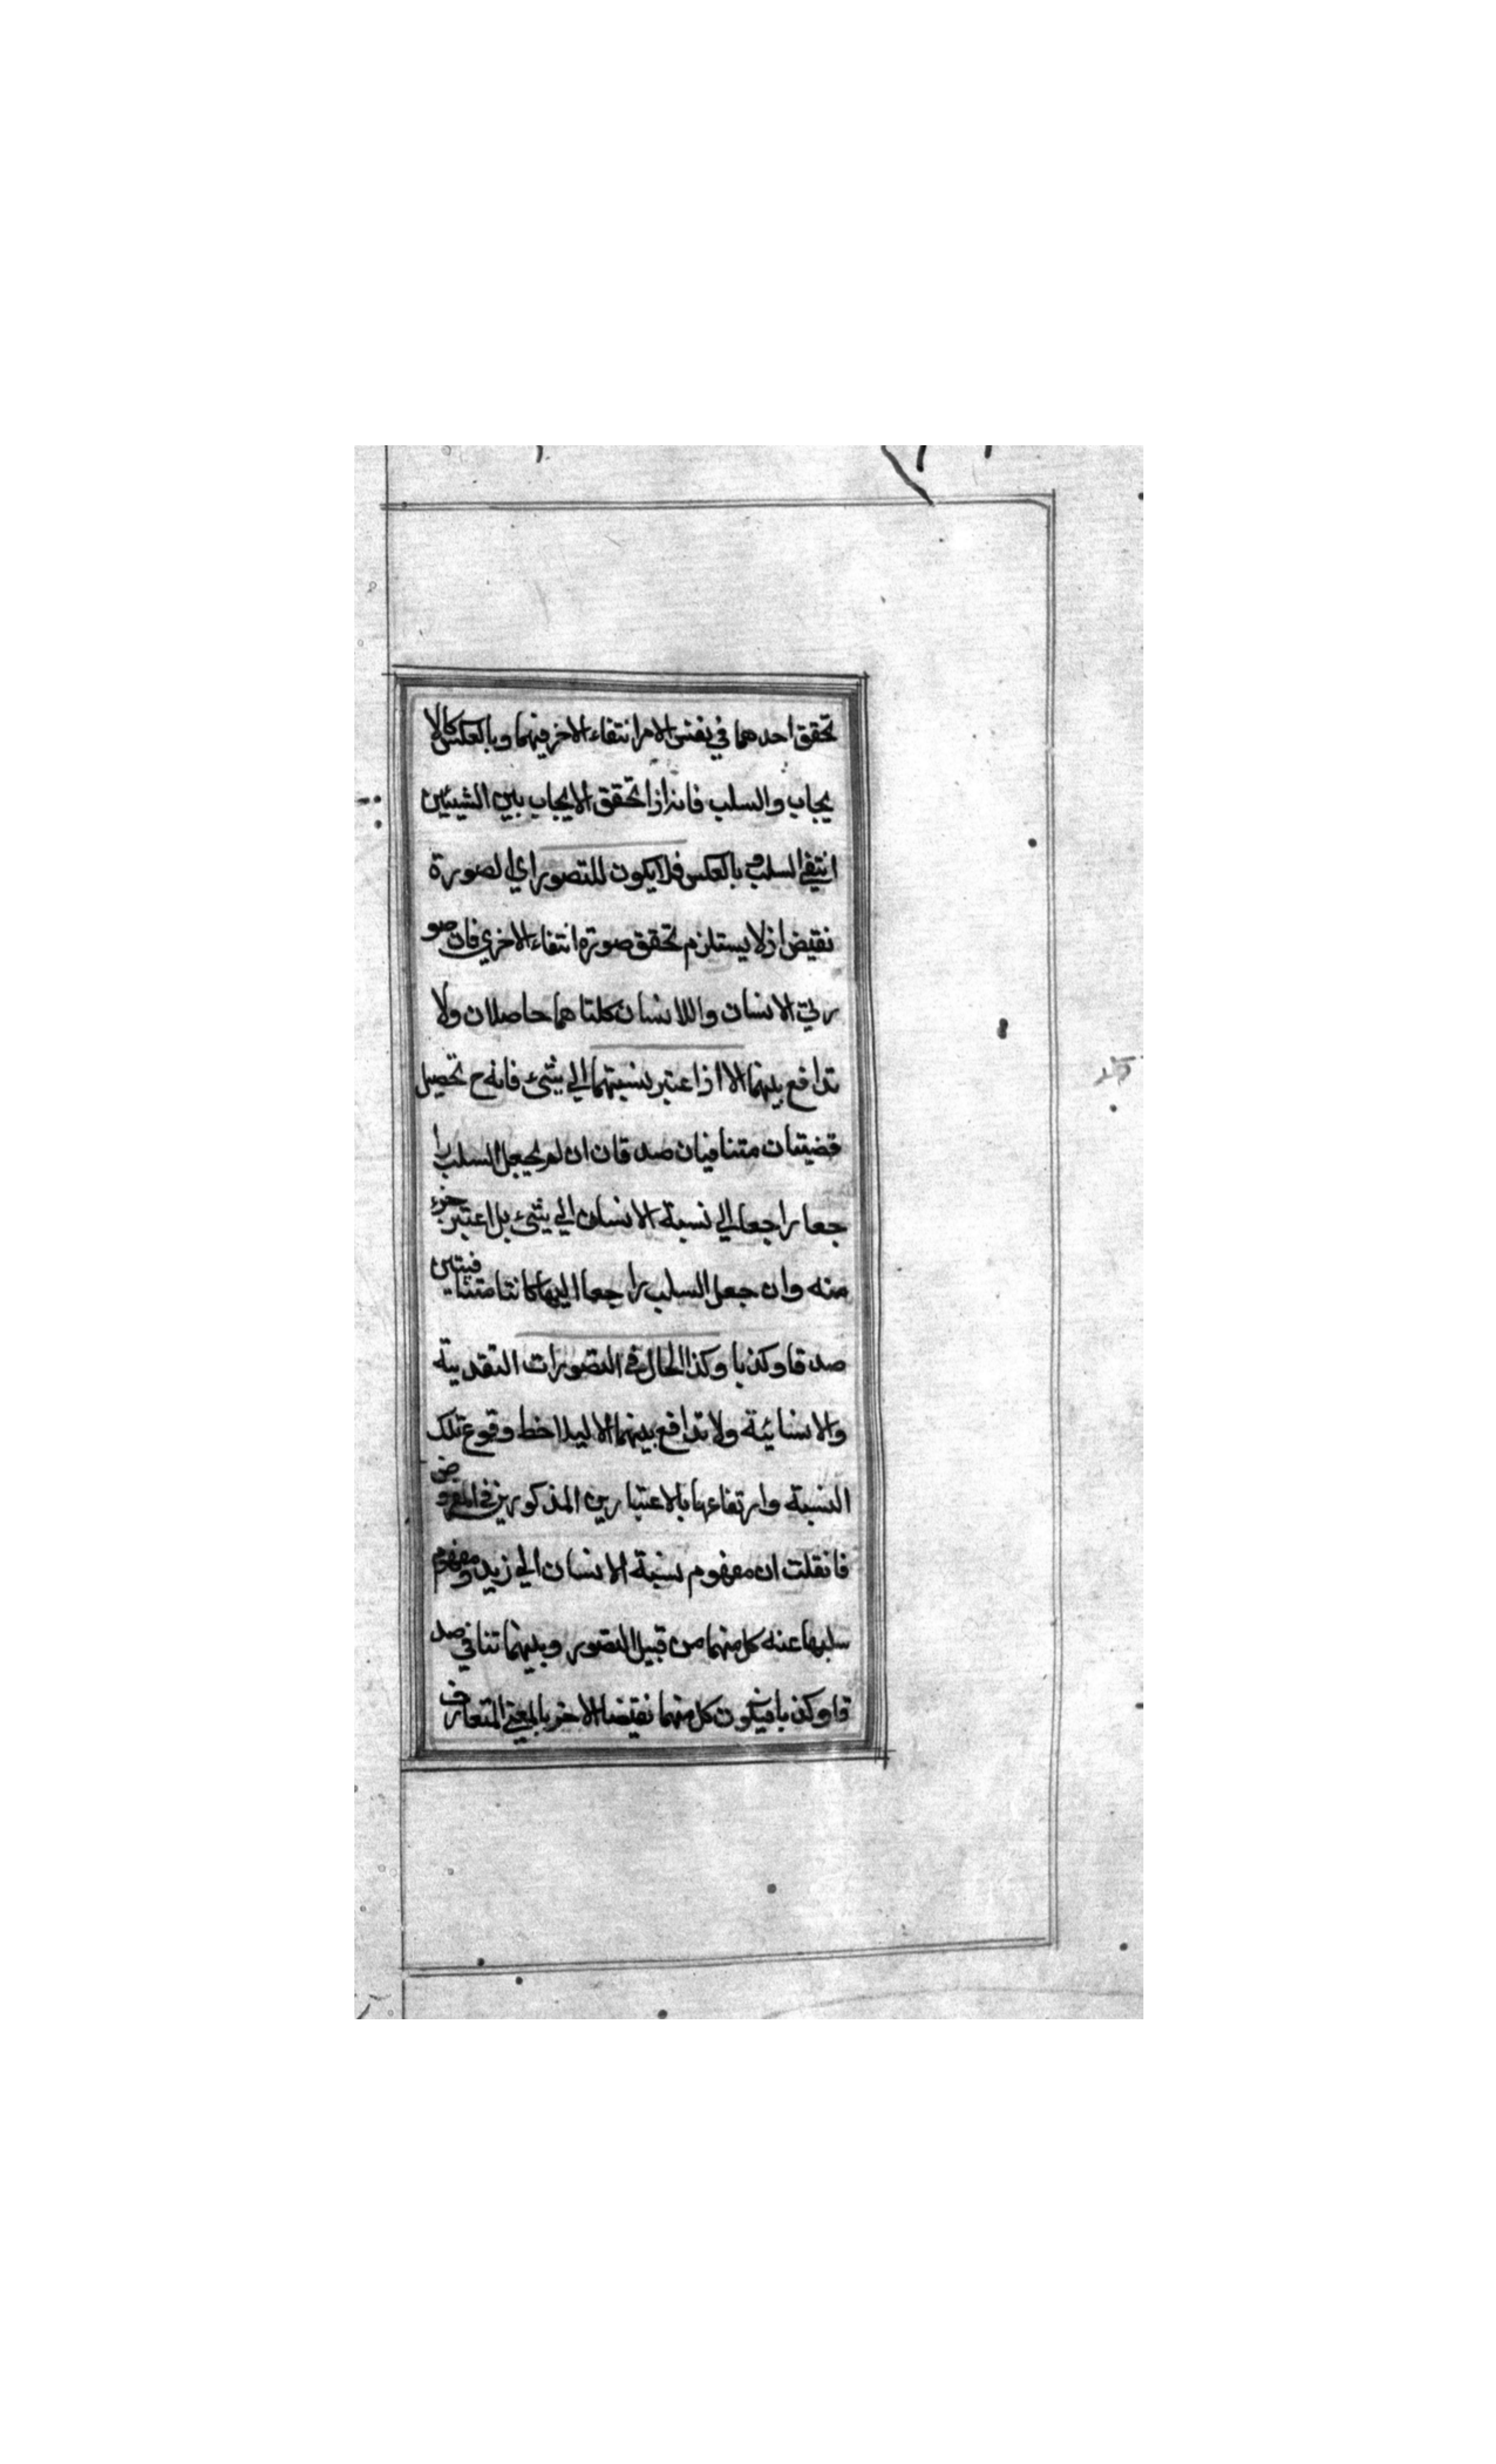 تحقق احدهما في نفس الامر انتفاء الاخر فيهما وبالعكس كالا
يجاب والسلب فانه اذا تحقق الايجاب بين الشيئين
انتفى السلب وبالعكس فلا يكون للتصور اي الصورة
نقيض اذ لا يستلزم تحقق صورة انتفاء الاخرى فان صو
رتي الانسان واللا نسان كلتاهما حاصلان ولا
تدافع بينهما الا اذا اعتبر نسبتهما الى شئ فانه ح تحصيل
قضيتان متنافيان صدقان ان لم يجعل السلب را
جعا راجعا الى نسبة الانسان الى شئ بل اعتبر جزء
منه وان جعل السلب راجعا اليها كانتا متنافيتين
صدقا وكذبا وكذا الحال في التصورات التقديية
والانسائية ولا تدافع بينهما الا ليلاخط وقوع تلك
النسبة وارتفاعها بالاعتبارين المذكورين في المفروض
فانقلت ان مفهوم نسبة الانسان الى زيد ومفهوم
سلبها عنه كل منهما من قبيل التصور وبينهما تنافي صد
قا وكذبا فيكون كل منهما نقيضا الاخر بالمعنى المتعارف